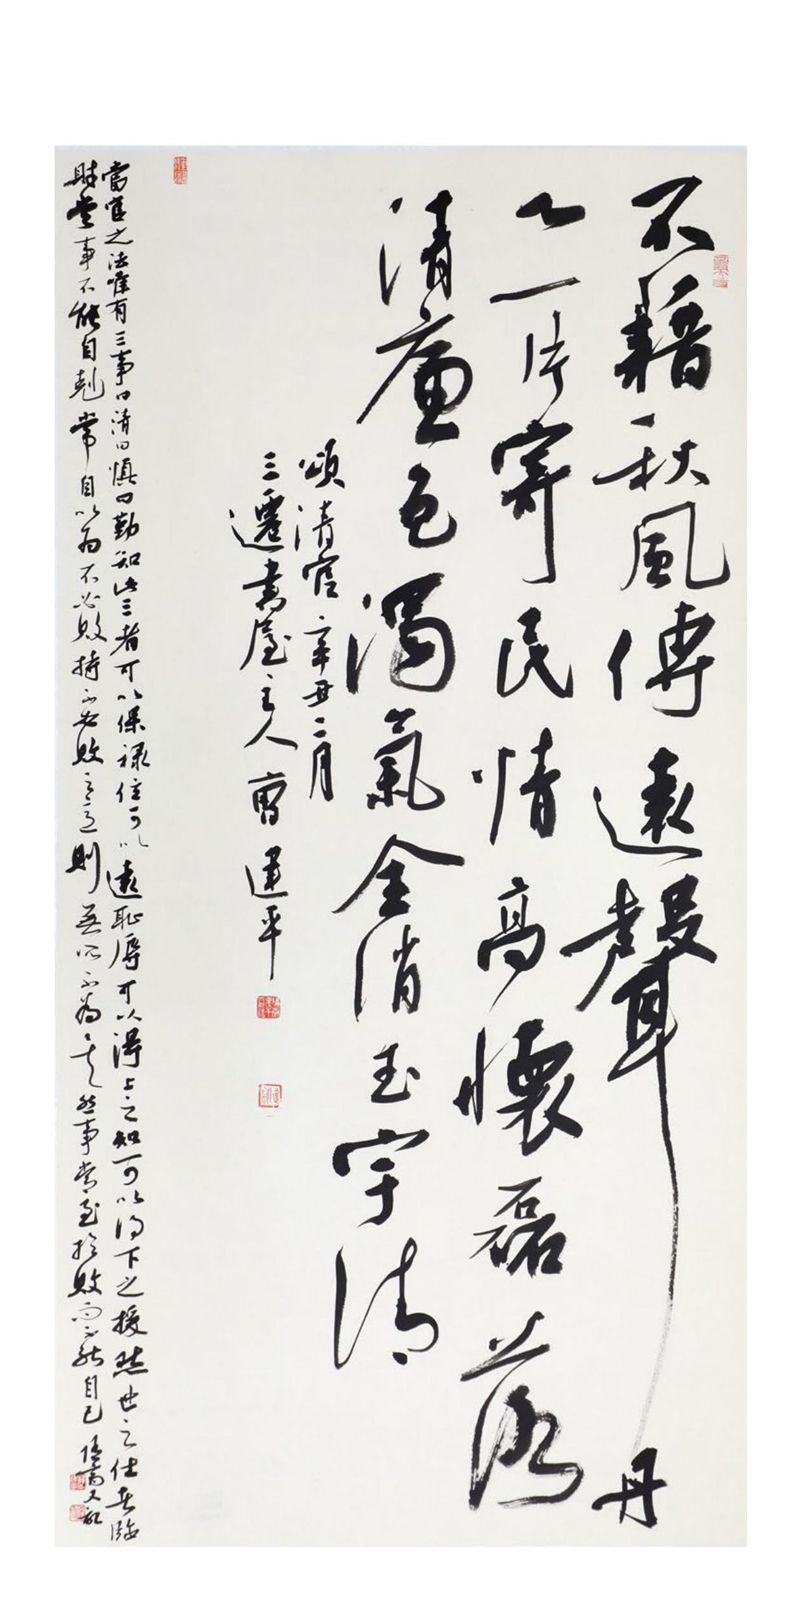 不藉秋風傳遠聲丹
心一片寄民情高懷磊落
清廉色濁氣全消玉宇清
頌清官辛丑二月
三遷書屋主人曹建平
當官之法唯有三事曰清曰慎曰勤知此三者可以保祿位可以遠恥辱可以得上之知可以得下之援然世之仕者臨
財當事不能自剋常自以為不必敗持不必敗之意則無所不為矣然事常至於敗而不能自已 又記